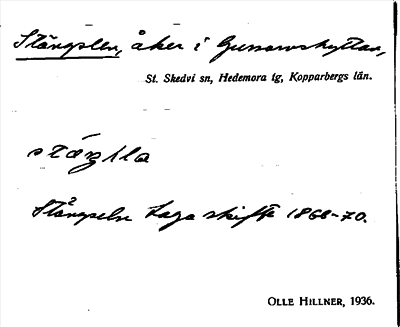 Stängslen, åker i Gussarvshyttan,
St. Skedvi sn, Hedemora tg, Kopparbergs län.
Stångseln Laga skifte 1868-70.
OLLE HILLNER, 1936.